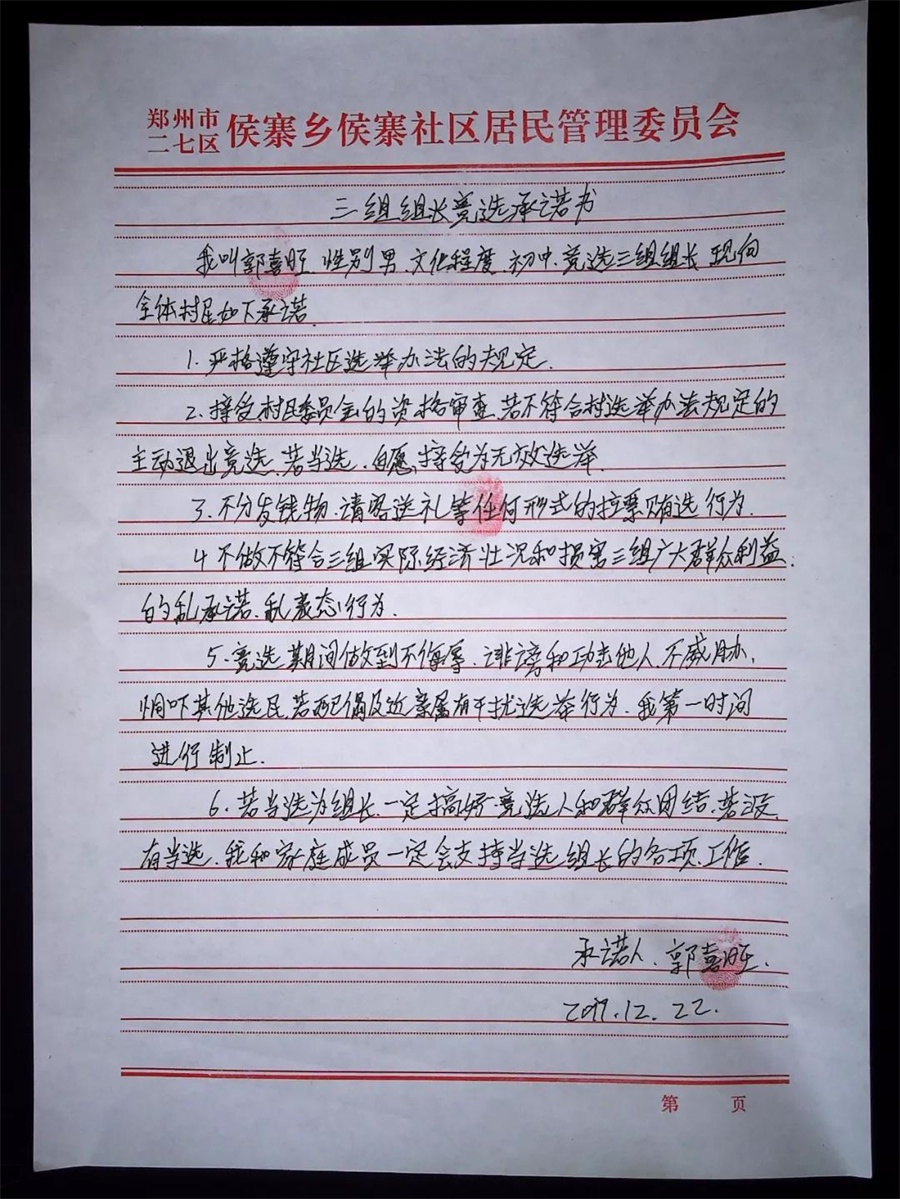 郑州市
二七区 侯寨乡侯寨社区居民管理委员会
三组组长竞选承诺书
我叫郭喜旺 性别男 文化程度 初中、竞选三组组长 现向
全体村民如下承诺
1、严格遵守社区选举办法的规定.
2、接受村民委员会的资格审查、若不符合村选举办法规定的
主动退出竞选、若当选、自愿接受为无效选举.
3、不分发钱物、请客送礼等任何形式的拉票贿选行为.
4 不做不符合三组实际经济壮况和损害三组广大群众利益
的乱承诺、乱表态行为.
5、竞选期间做到不侮辱、诽谤和功击他人、不威胁、
恫吓其他选民、若配偶及近亲属有干扰选举行为、我第一时间
进行制止.
6、若当选为组长、一定搞好竞选人和群众团结、若没
有当选、我和家庭成员一定会支持当选组长的各项工作.
承诺人、郭喜旺.
2017.12.22.
第 页